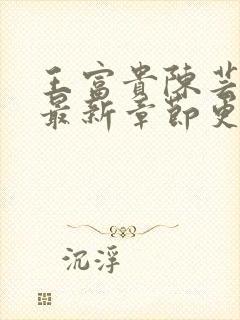 王富貴陳芸
最新章節更
沉浮